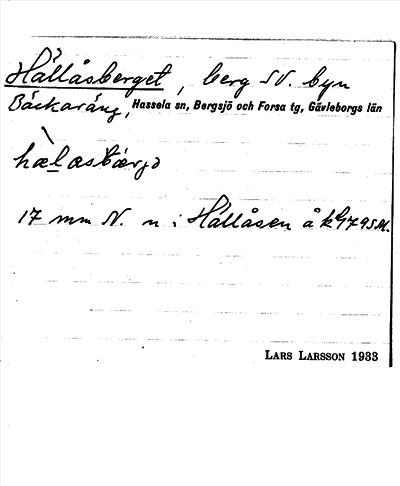 Hållåsberget, berg SV. byn
Bäckaräng, Hassela sn, Bergsjö och Forsa tg, Gävleborgs län
17 mm N. n i Hållåsen å kbl 79 SM.
LARS LARSSON 1933